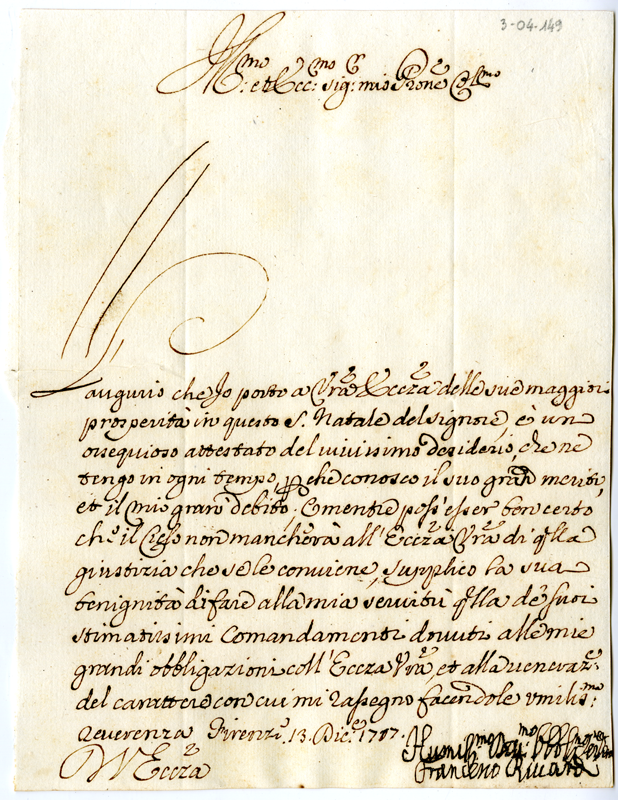 3-04-149
Ill.mo et Ecc.mo Sig.r mio P'rone Col.mo
L'augurio che Io porto a V'ra Eccza delle sue maggiori
prosperità in questo S. Natale del Signore, è un
ossequioso attestato del vivissimo desiderio, che ne
tengo in ogni tempo, p che conosco il suo gran merito,
et il mio gran debito; E mentre poss'esser ben certo
che il Cielo non mancherà all'Eccza V'ra di q'lla
giustizia che se le conviene, supplico la sua
benignità di fare alla mia servitù q'lla de suoi
stimatissimi Comandamenti dovuti alle mie
grandi obbligazioni coll'Eccza V'ra, et alla veneraz.e
del carattere con cui mi rassegno facendole umiliss.ma
reverenza Firenze 13. Dic.e 1717.
D V Eccza
Humil.mo Obbl.mo
Francesco